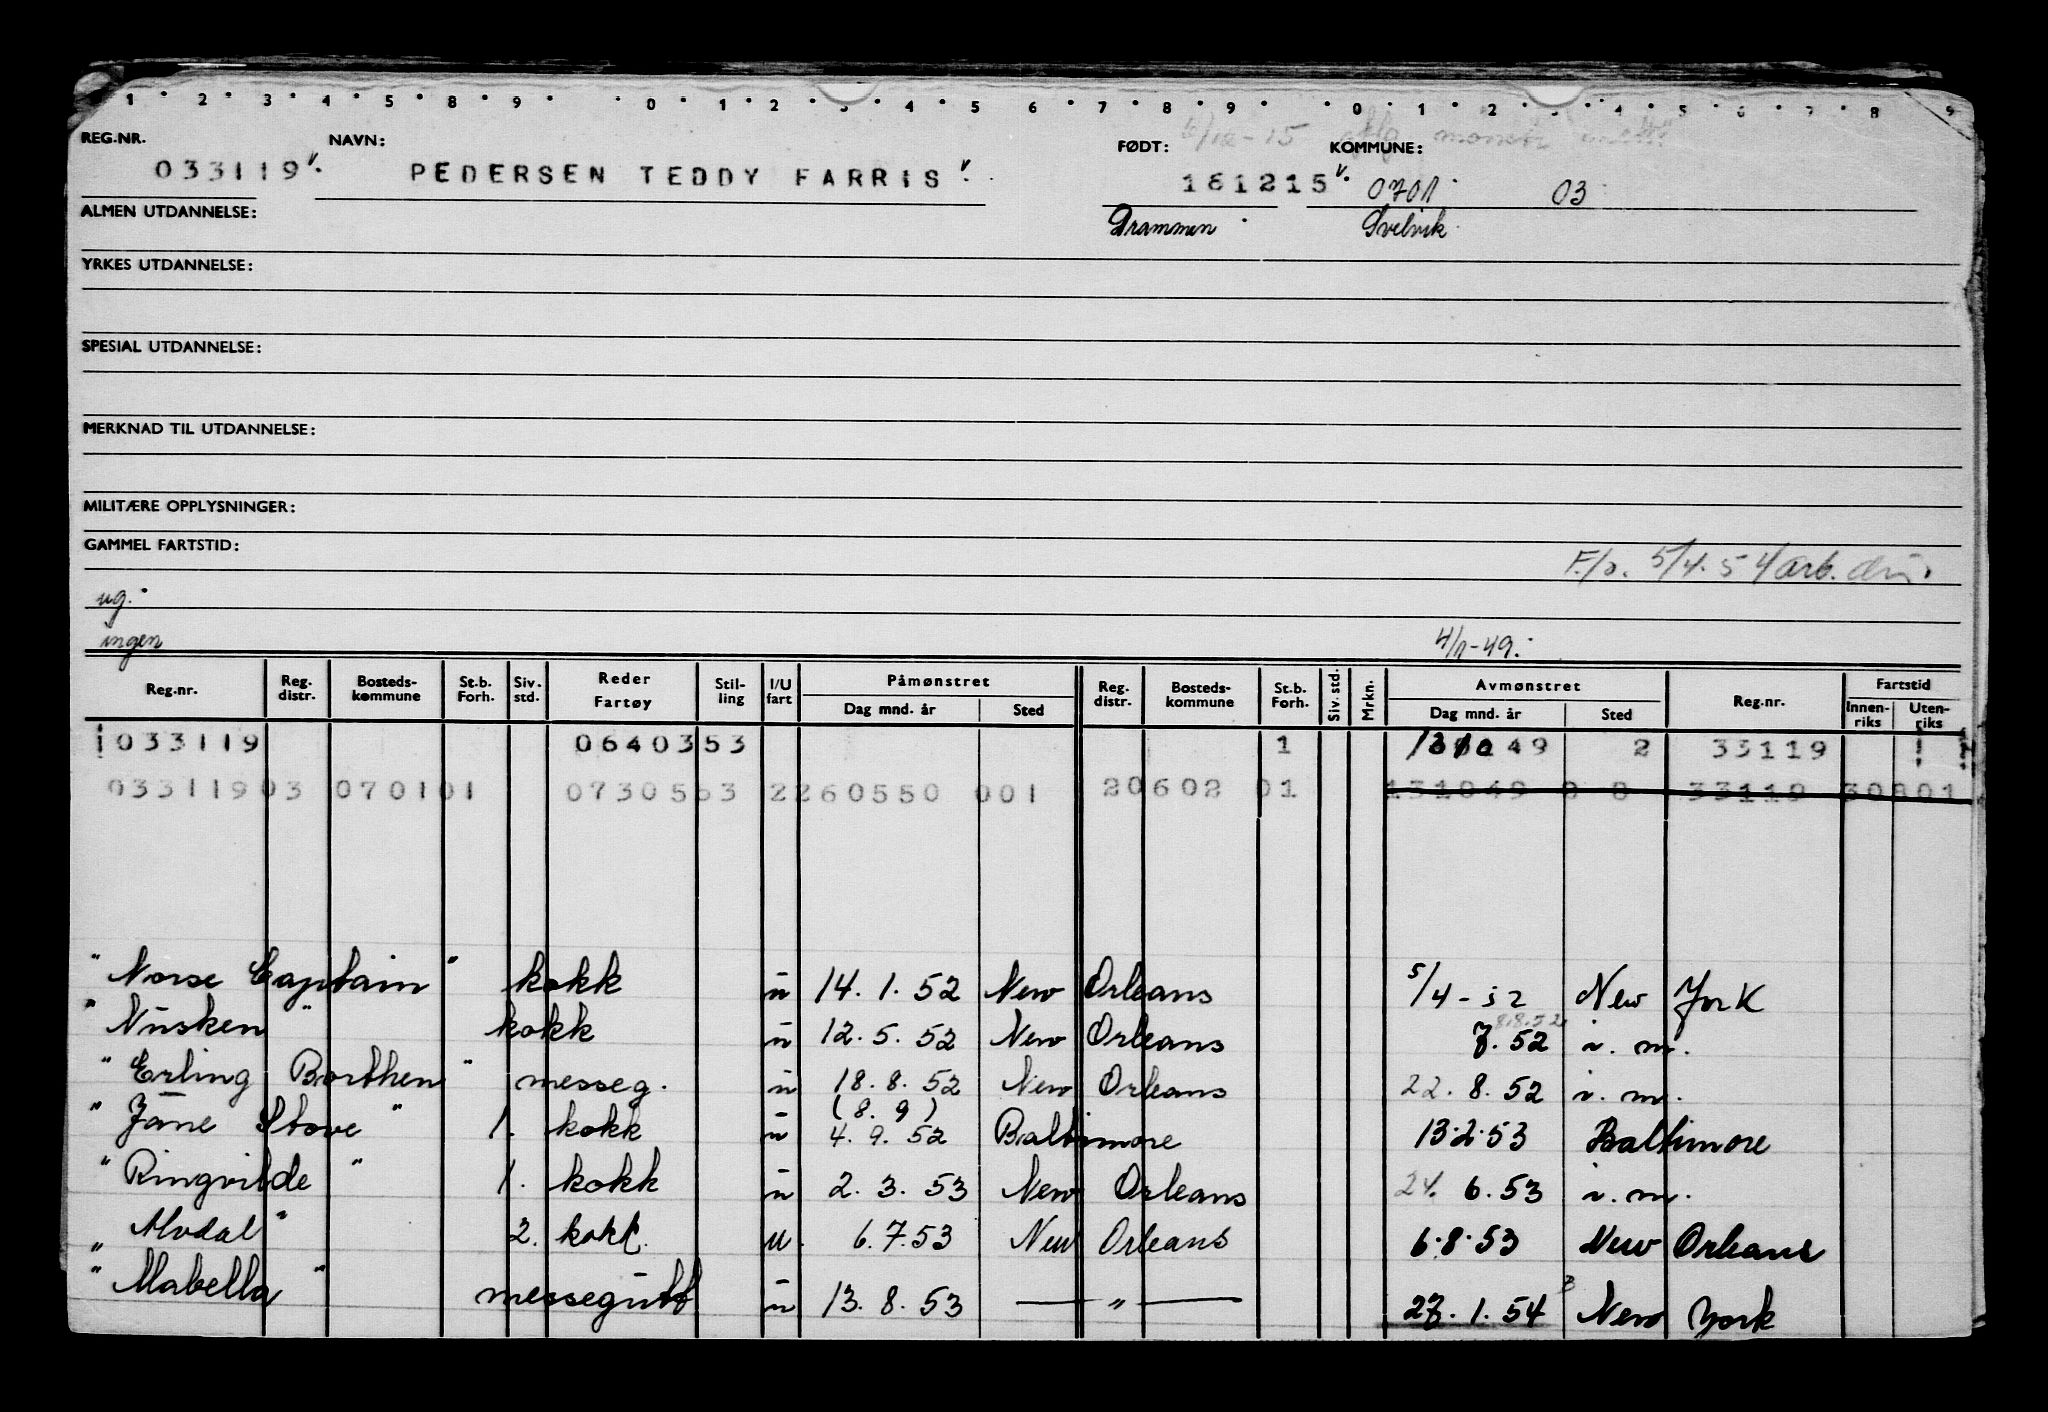 1 2 3 4 5 8 9 0 1 2 3 4 5 6 7 8 9 0 1 2 3 4 5 6 7 8 9
6/12-15
REG.NR. NAVN: FØDT: KOMMUNE:
033119 v. PEDERSEN TEDDY FARRIS v. 161215 v. 0701 03
ALMEN UTDANNELSE: Drammen Svelvik
YRKES UTDANNELSE:
SPESIAL UTDANNELSE:
MERKNAD TIL UTDANNELSE:
MILITÆRE OPPLYSNINGER:
GAMMEL FARTSTID:
F./o. 5/4.54 arb.
ug.
ingen 4/1-49.
Reg.nr. Reg. distr. Bosteds- kommune St.b. Forh. Siv. std. Reder Fartøy Stil- ling I/U fart Påmønstret Dag mnd. år Sted Reg. distr. Bosteds- kommune St.b. Forh. Siv. std. Mrkn. Avmønstret Dag mnd. år Sted Reg.nr. Fartstid Innen- riks Uten- riks
033119 0640353 1 131049 2 33119
03311903 070101 0730563 2260550 001 20602 01 131049 8 8 33119 30801
" Norse Captain " kokk u 14. 1. 52 New Orleans 5/4-52 New York
" Nusken " kokk u 12. 5. 52 New Orleans 7. 52 8.8.52 i. m.
" Erling Borthen " messeg. u 18. 8. 52 New Orleans 22. 8. 52 i. m.
(8. 9)
" Jane Stove " 1. kokk u 4. 9. 52 Baltimore 13.2.53 Baltimore
" Ringvilde " 1. kokk u 2. 3. 53 New Orleans 24. 6.53 i. m.
" Alvdal " 2. kokk. u. 6. 7. 53 New Orleans 6.8.53 New Orleans
" Mabella " messegutt u 13. 8. 53 — " — 27. 1. 54 New York